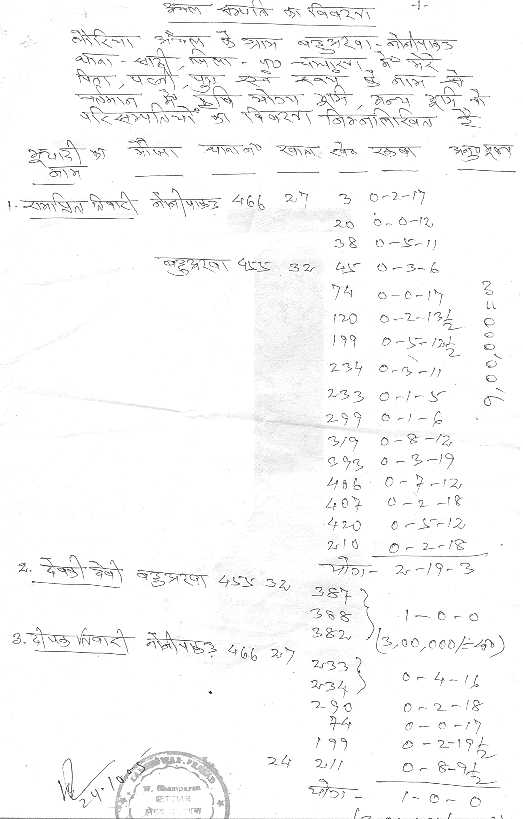 अचल सम्पत्ति का विवरण -1-
नौरिया अंचल के ग्राम बहुअरवा - नोनीपाकड़
थाना - साठी, जिला - प० चम्पारण में मेरे
पिता, पत्नी, पुत्र एवं स्वयं के नाम से
वर्तमान में कृषि योग्य भूमि, अन्य भूमि के
परिसम्पत्तियों का विवरण निम्नलिखित है
भूधारी का मौजा थाना नं० खाता खेसरा रकबा
नाम
1. रामाश्रित तिवारी नोनीपाकड़ 466 27 3 0-2-17
20 0-0-12
38 0-5-11
बहुअरवा 455 32 45 0-3-6
74 0-0-17
120 0-2-13½
199 0-5-12½
234 0-3-11
233 0-1-5
299 0-1-6
319 0-8-12
393 0-3-19
406 0-7-12
407 0-2-18
420 0-5-12
210 0-2-18
योग - 2-19-3
2. देवकी देवी बहुअरवा 455 32 387
388 1-0-0
382 (3,00,000/=
3. दीपक तिवारी नोनीपाकड़ 466 27 233
234 0-4-16
290 0-2-18
74 0-0-17
199 0-2-19½
24 211 0-8-9½
योग - 1-0-0
24.10.05
W. Champaran